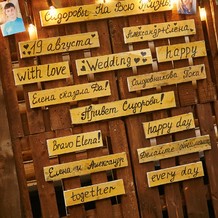 Сидоровы На Всю Жизнь
Александр+Елена
19 августа
happy
Wedding
with love
Елена сказала Да!
Привет Сидорова!
happy day
Bravo Elena!
Делайте
Елена и Александр
every day
together